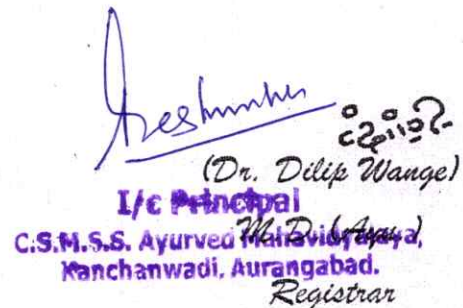 (Dr. Dilip Wange)
I/c Principal
M.D. (Ayu.)
C.S.M.S.S. Ayurved Mahavidyalaya,
Kanchanwadi, Aurangabad.
Registrar